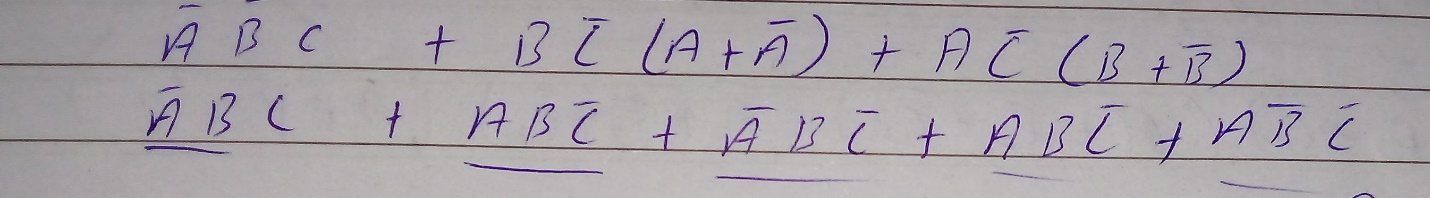 A̅ B̅ C + B C̅ (A + A̅) + A C̅ (B + B̅)
A̅ B C + A B C̅ + A̅ B C̅ + A B C̅ + A B̅ C̅